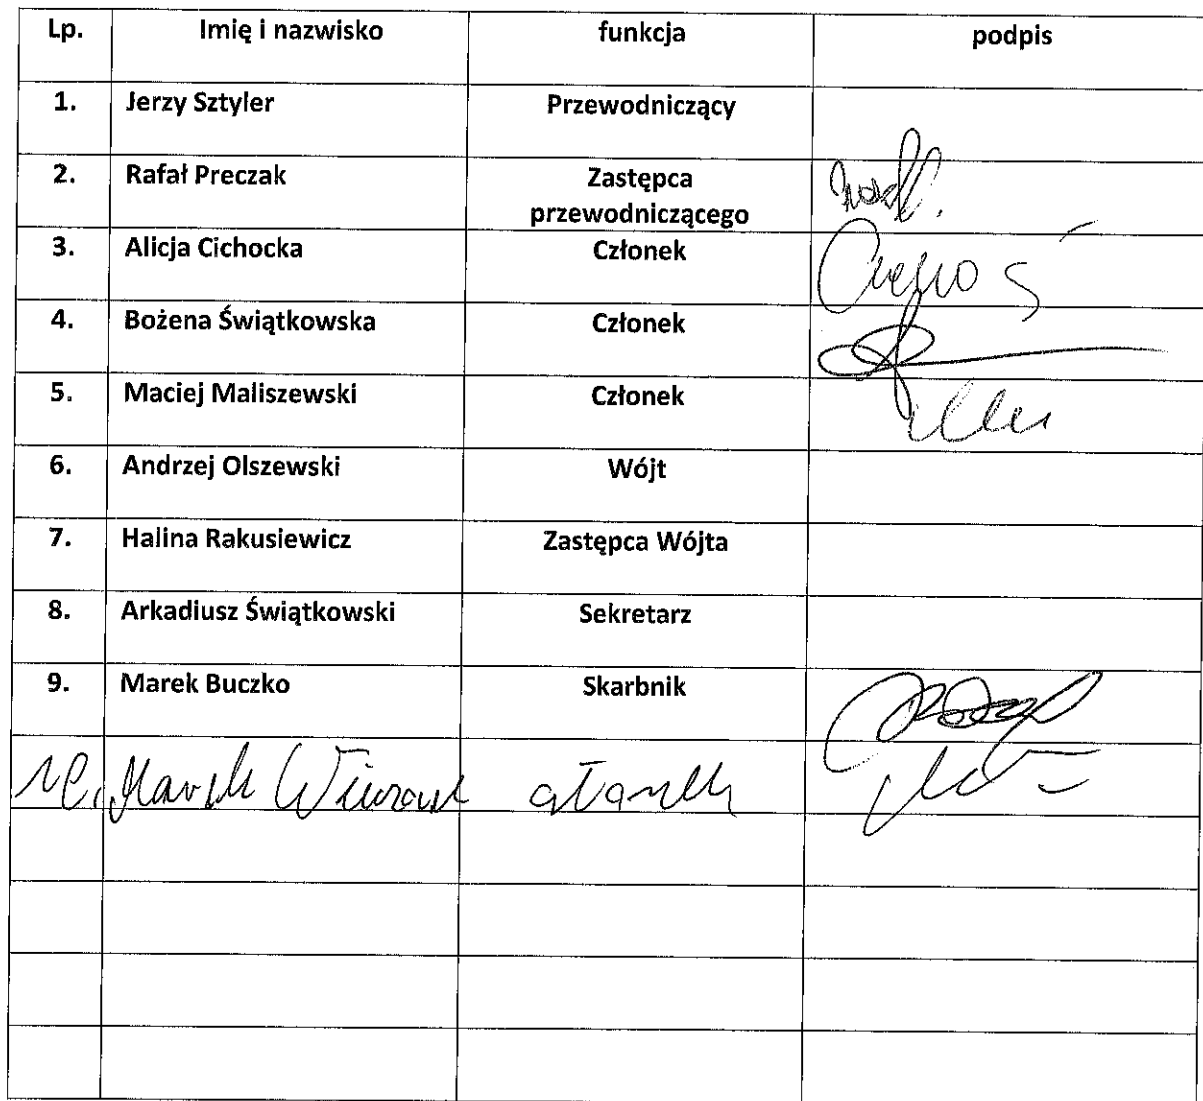 Lp. Imię i nazwisko funkcja podpis
1. Jerzy Sztyler Przewodniczący
2. Rafał Preczak Zastępca
przewodniczącego
3. Alicja Cichocka Członek
4. Bożena Świątkowska Członek
5. Maciej Maliszewski Członek
6. Andrzej Olszewski Wójt
7. Halina Rakusiewicz Zastępca Wójta
8. Arkadiusz Świątkowski Sekretarz
9. Marek Buczko Skarbnik
10. Marek